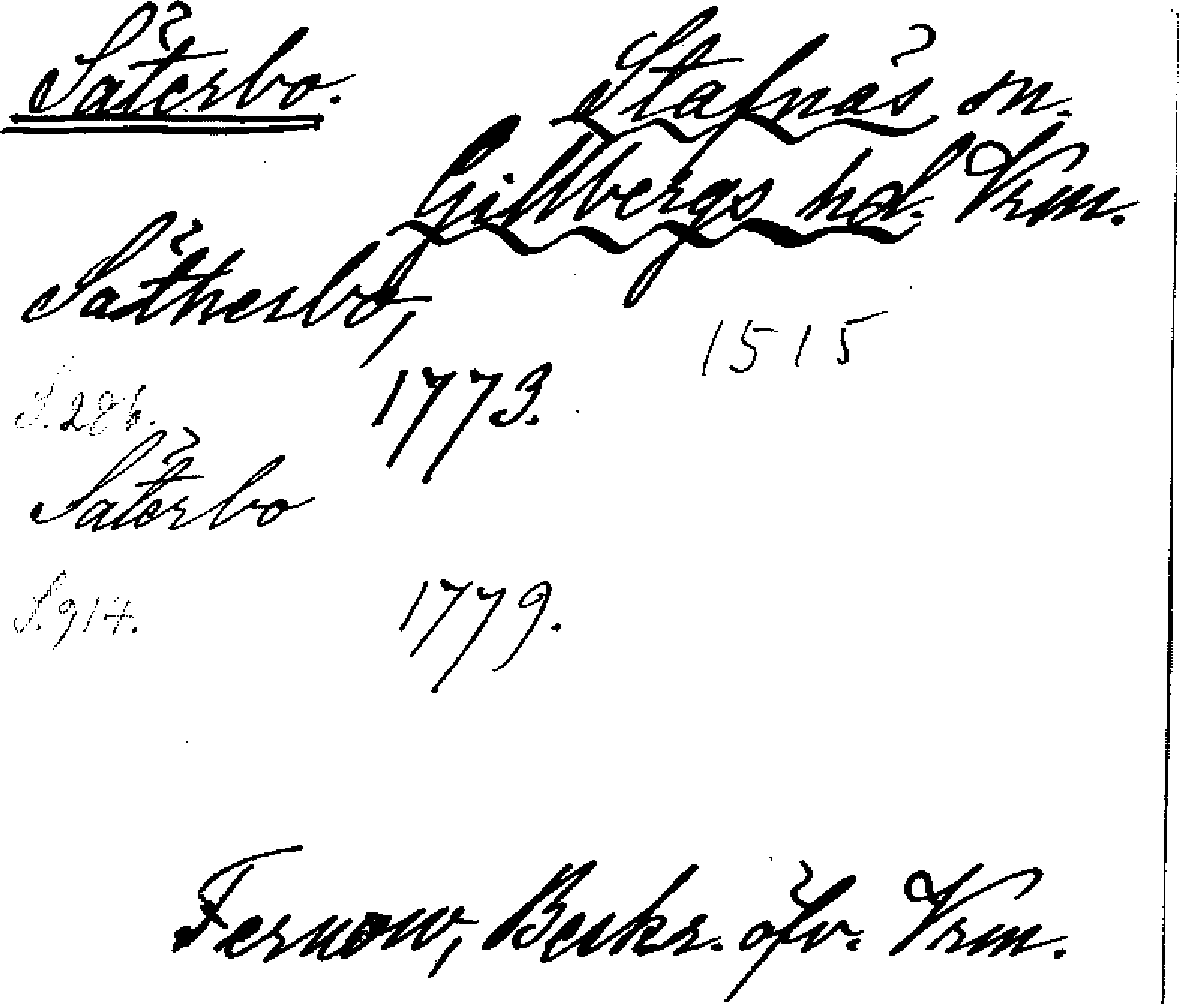 Säterbo.
Stafnäs sn.
Gillbergs hd. Vrm.
Sätherbo,
1515
S. 286.
1773.
Säterbo
S. 914.
1779.
Fernow, Beskr. öfv. Vrm.